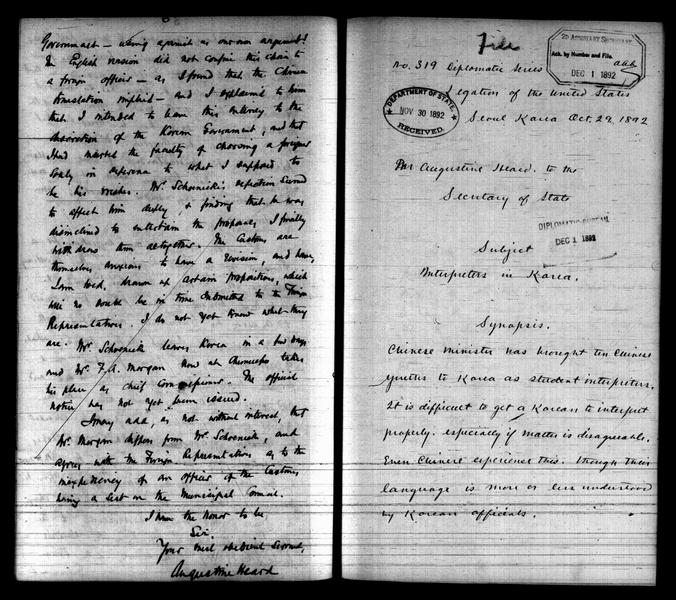 Government - using against us our own argument!
The English version did not confine this choice to
a foreign officer - as I found that the Chinese
translation implied - and I explained to him
that I intended to leave this entirely to the
discretion of the Korean Government, and that
I had inserted the faculty of choosing a foreigner
solely in deference to what I supposed to
be his wishes. Mr. Schoenicke's defection seemed
to affect him deeply, & finding that he was
disinclined to entertain the proposal, I finally
withdrew them altogether. The Customs are
themselves anxious to have a revision, and have,
I am told, drawn up certain propositions, which
will no doubt be in time submitted to the Foreign
Representatives. I do not yet know what they
are. Mr. Schoenicke leaves Korea in a few days
and Mr. F.A. Morgan now at Chemulpo takes
his place as Chief Commissioner. The official
notice has not yet been issued.
I may add, as not without interest, that
Mr. Morgan differs from Mr. Schoenicke, and
agrees with the Foreign Representatives as to the
inexpediency of an officer of the Customs
having a seat on the Municipal Council.
I have the honor to be
Sir
Your most obedient servant,
Augustine Heard
File
2D ASSISTANT SECRETARY
Ack. by Number and File.
DEC 1 1892
No. 319 Diplomatic Series
DEPARTMENT OF STATE.
NOV 30 1892
RECEIVED.
Legation of the United States
Seoul Korea Oct. 29, 1892
Mr Augustine Heard. to the
Secretary of State
DIPLOMATIC BUREAU,
DEC 1 1892
Subject
Interpreters in Korea.
Synopsis.
Chinese Minister has brought ten Chinese
youths to Korea as student interpreters.
It is difficult to get a Korean to interpret
properly. especially if matter is disagreeable.
Even Chinese experience this. though their
language is more or less understood
by Korean officials.